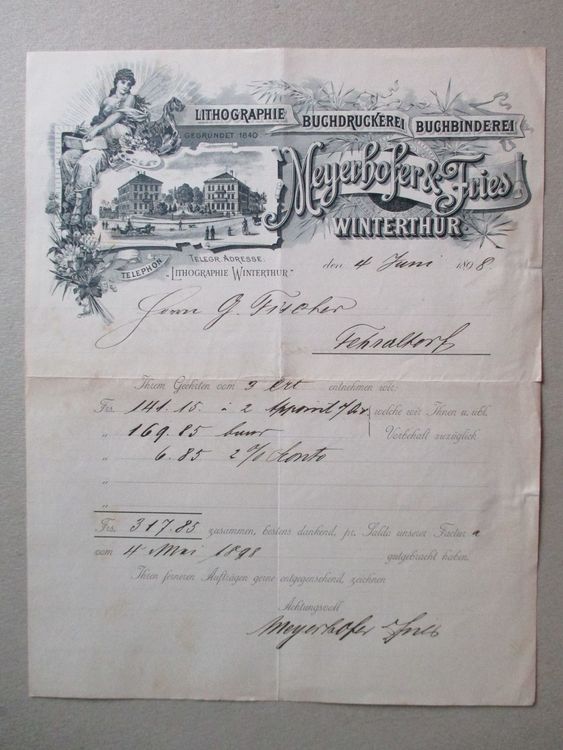 LITHOGRAPHIE BUCHDRUCKEREI BUCHBINDEREI
GEGRÜNDET 1840
Meyerhofer & Fries
WINTERTHUR
TELEPHON
TELEGR. ADRESSE.
"LITHOGRAPHIE WINTERTHUR"
den 4 Juni 1898.
Herrn G. Fischer
Fehraltorf
Ihrem Geehrten vom 3 crt entnehmen wir:
Frs. 141.15. à 2 Appoint welche wir Ihnen u. übl.
" 169.85 baar Vorbehalt zuzüglich
" 6.85 2% Sconto
"
Frs. 317.85 zusammen, bestens dankend, pr. Saldo unserer Factur
vom 4 Mai 1898 gutgebracht haben.
Ihren ferneren Aufträgen gerne entgegensehend, zeichnen
Achtungsvoll
Meyerhofer & Fries